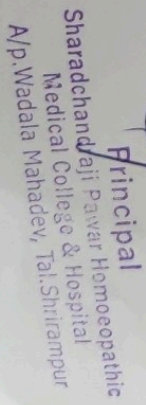 Principal
Sharadchandraji Pawar Homoeopathic
Medical College & Hospital
A/p.Wadala Mahadev, Tal.Shrirampur